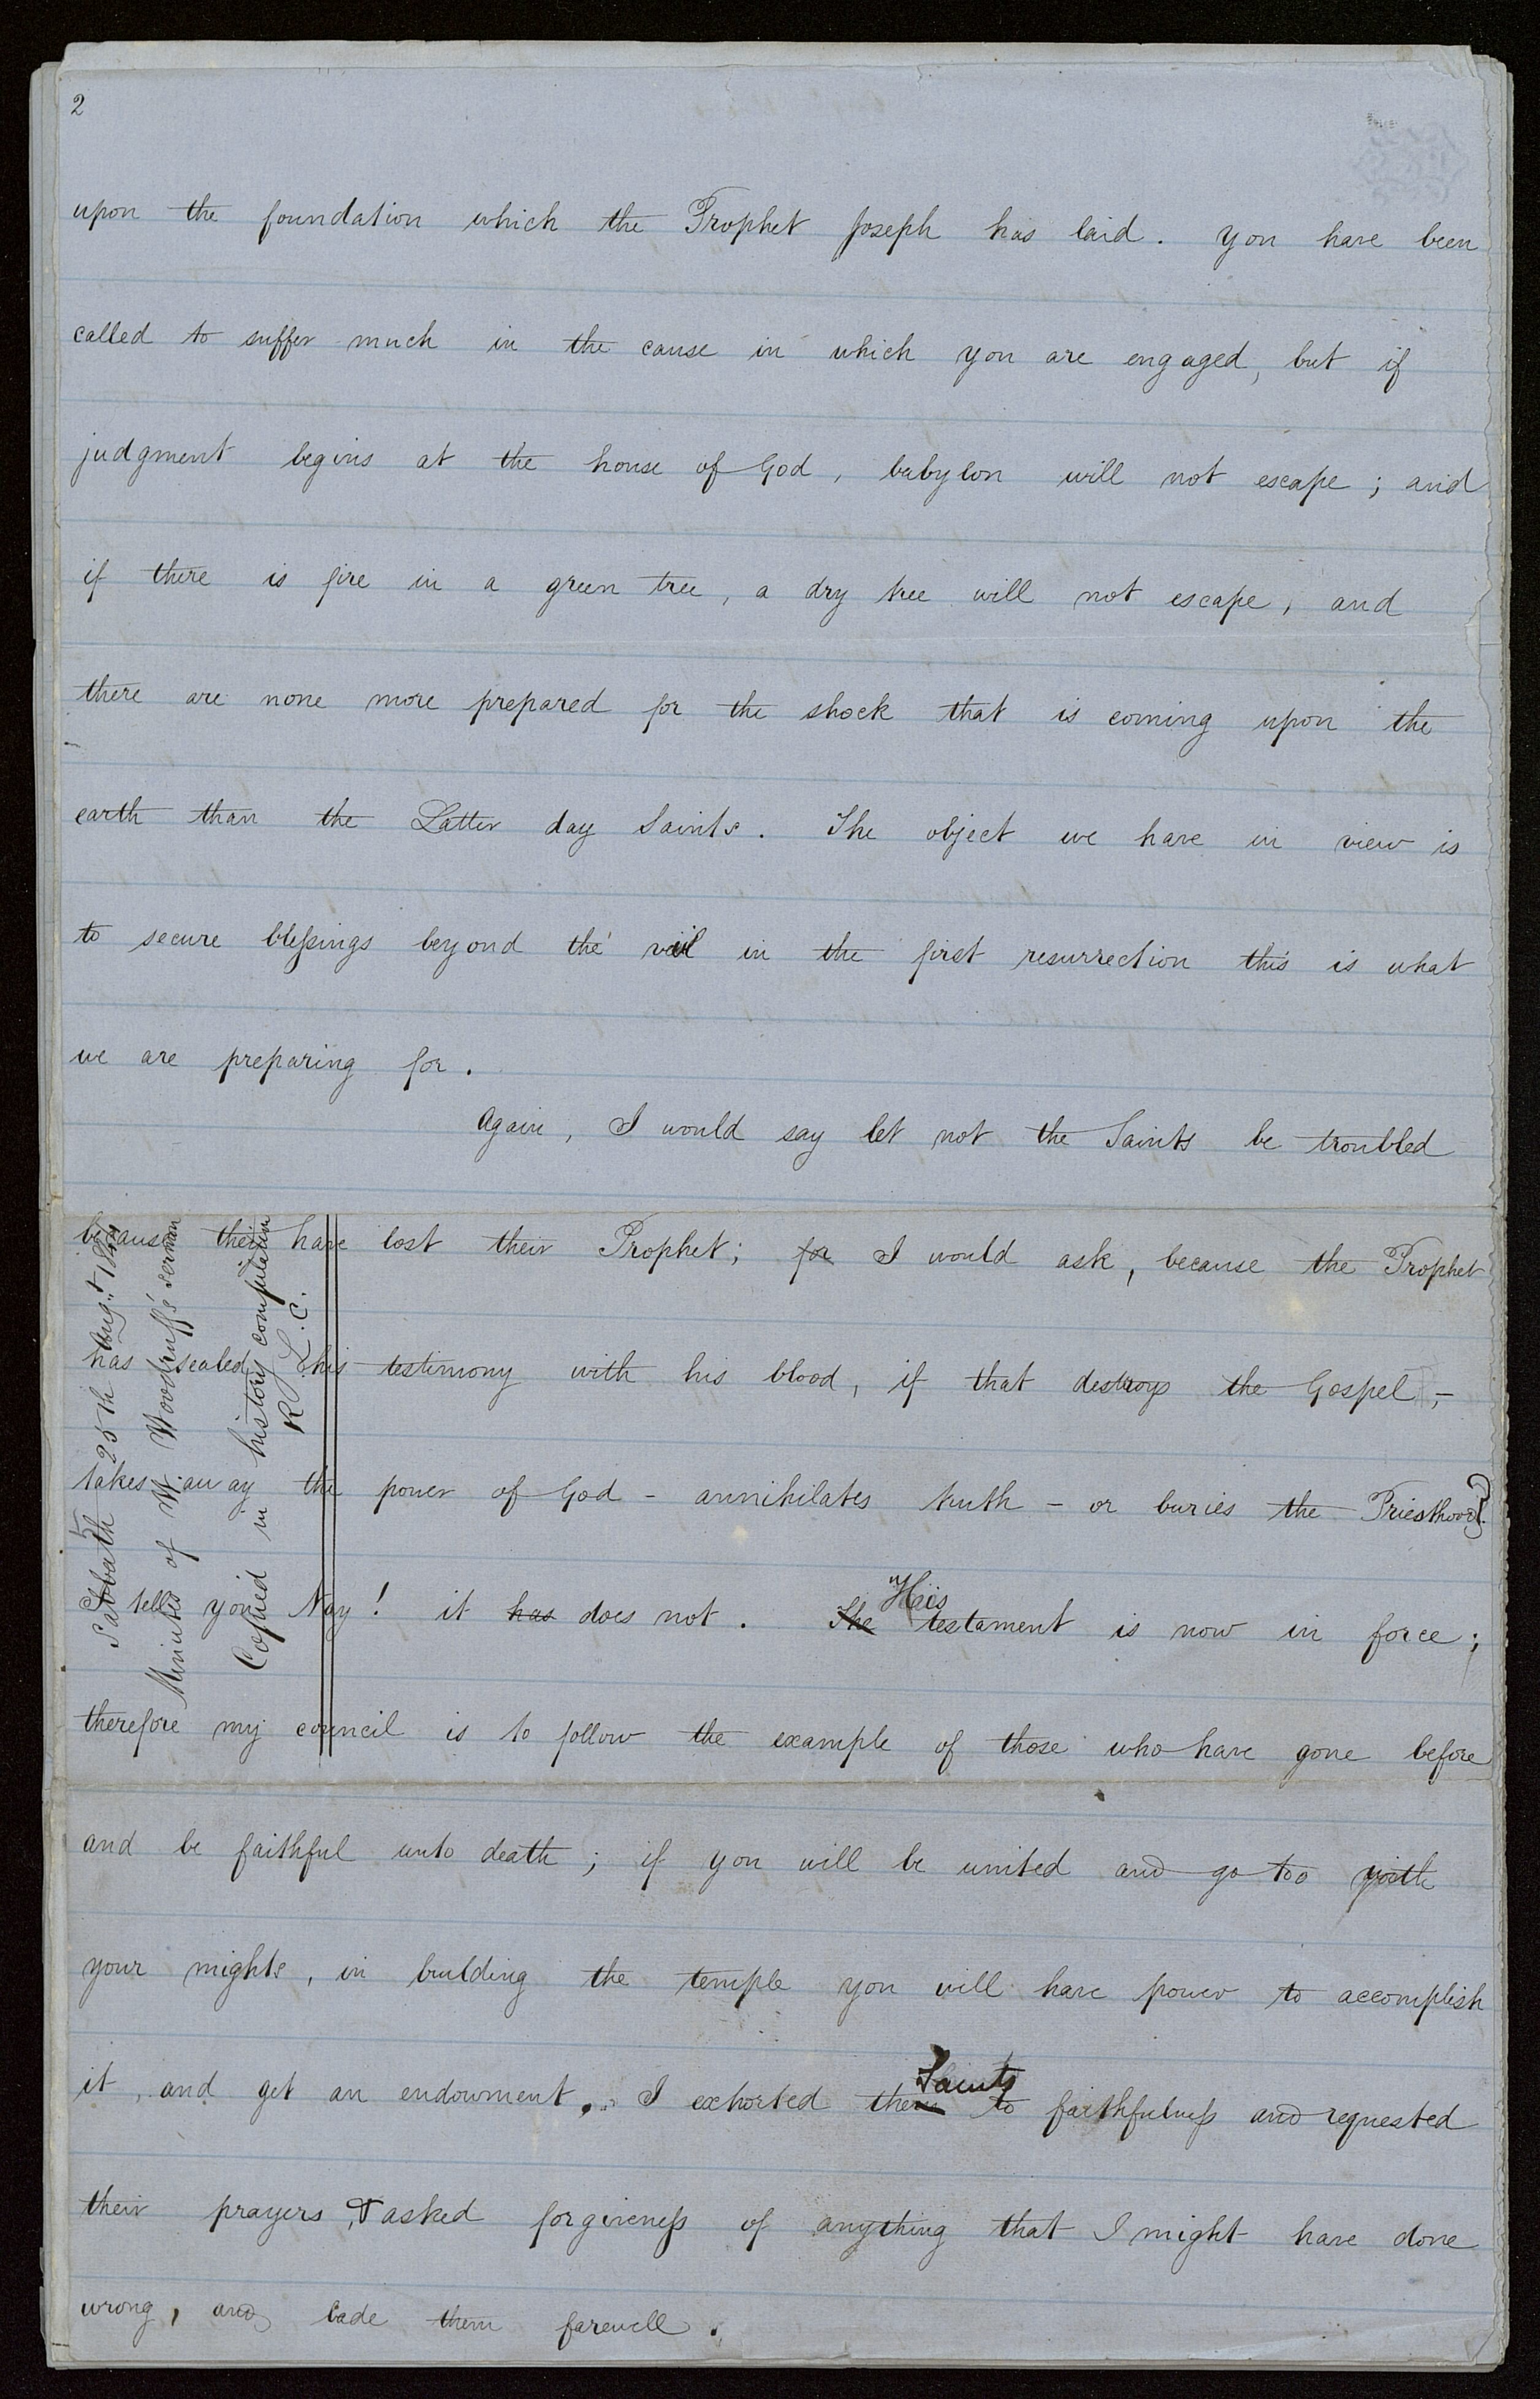 2
upon the foundation which the Prophet Joseph has laid. You have been
called to suffer much in the cause in which you are engaged, but if
judgment begins at the house of God, babylon will not escape; and
if there is fire in a green tree, a dry tree will not escape, and
there are none more prepared for the shock that is coming upon the
earth than the Latter day Saints. The object we have in view is
to secure blessings beyond the veil in the first resurrection this is what
we are preparing for.
Again, I would say let not the Saints be troubled
because they have lost their Prophet; for I would ask, because the Prophet
has sealed his testimony with his blood, if that destroys the Gospel,-
takes away the power of God - annihilates truth - or buries the Priesthood?
I tell you Nay! it has does not. The His testament is now in force;
therefore my council is to follow the example of those who have gone before
and be faithful unto death; if you will be united and go too with
your mights, in building the temple you will have power to accomplish
it, and get an endowment. I exhorted them Saints to faithfulness and requested
their prayers, & asked forgiveness of anything that I might have done
wrong, and bade them farewell.
Sabbath 25th Augt. 1844
Minutes of W. Woodruff's sermon
Copied in history compilation
R. L. C.